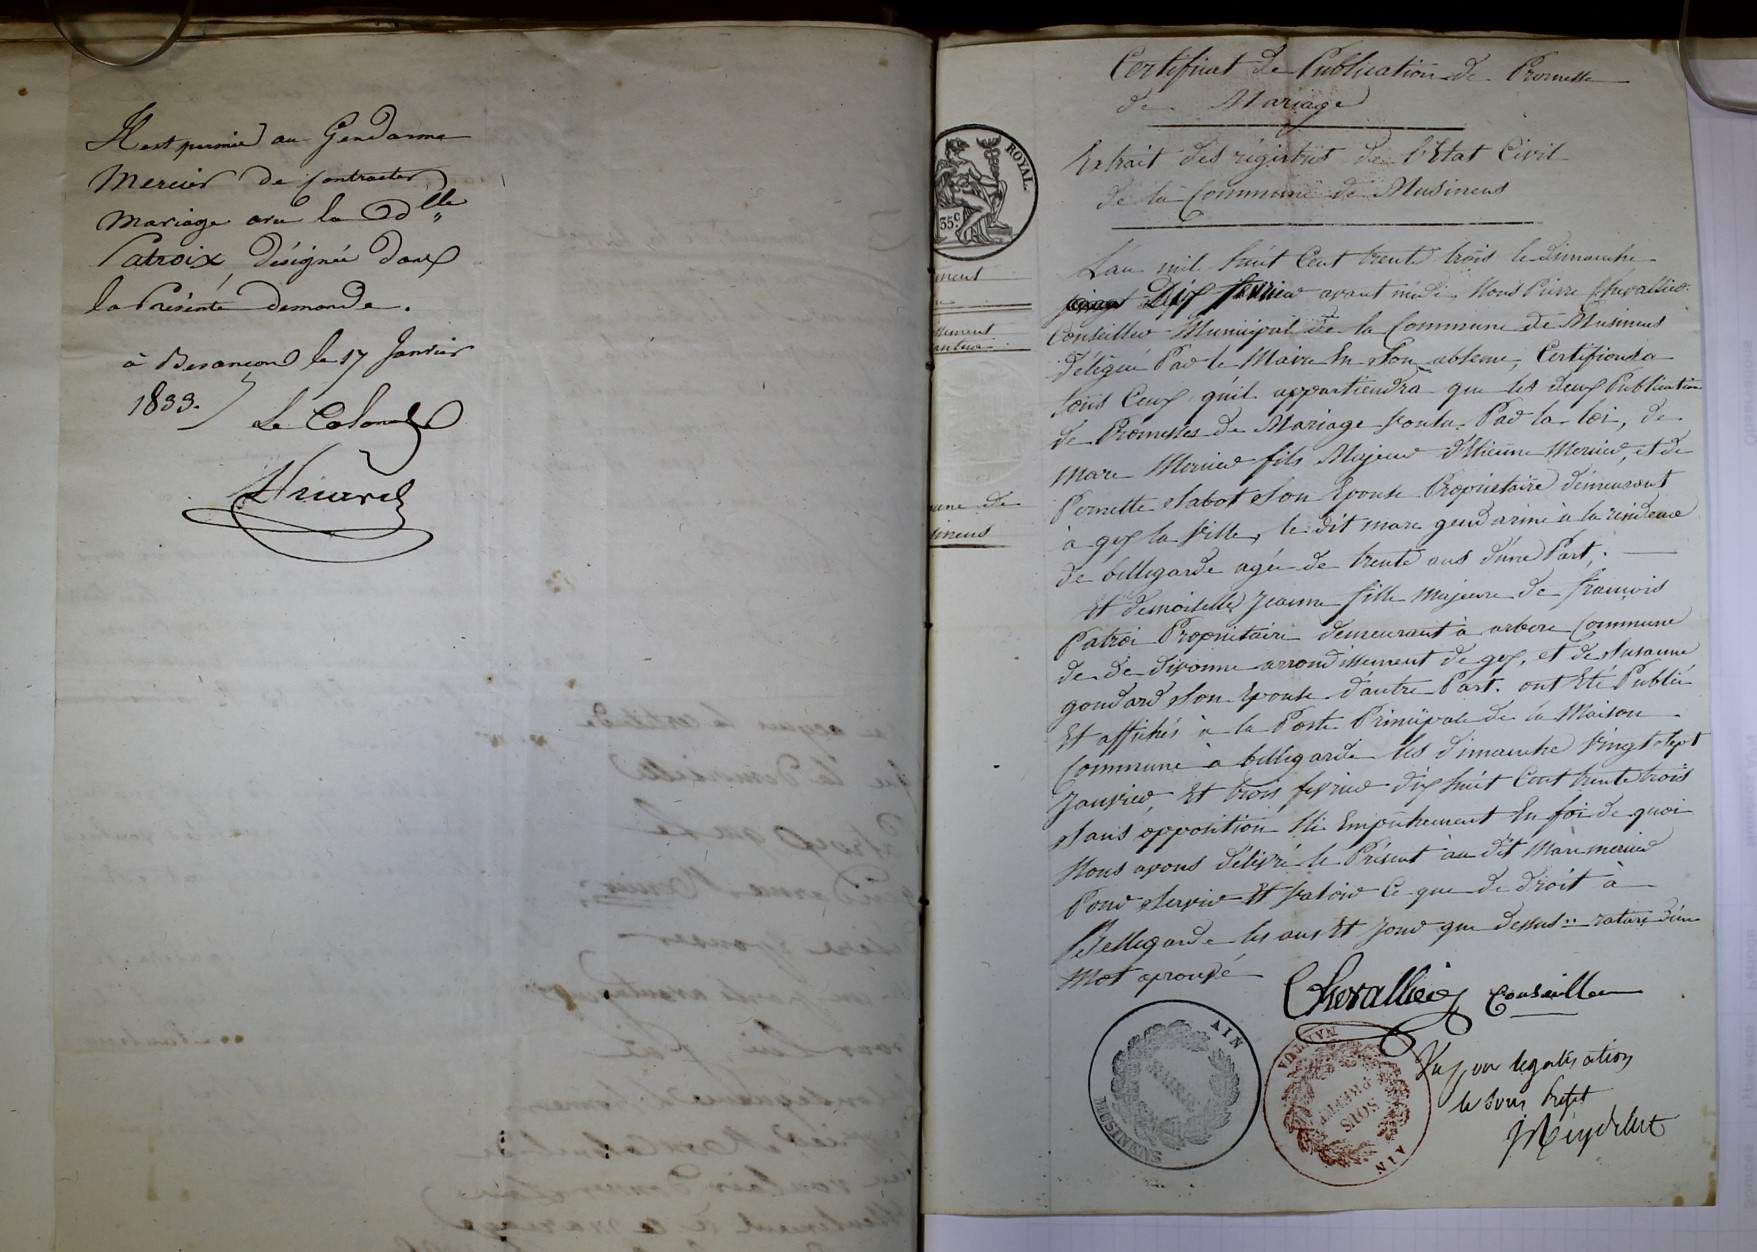 Il est permis au Gendarme
Mercier de contracter
Mariage avec la Dlle
Patroix désignée dans
la Présente demande.
à Besançon le 17 Janvier
1833.
Le Colonel
Certificat de Publication de Promesse
de Mariage
Extrait des régistres de l'Etat Civil
de la Commune de Musinens
ROYAL.
35.c
L'an mil huit Cent trente trois le dimanche
Dix fevrier avant midi Nous Pierre Chevallier
Conseiller Municipal de la Commune de Musinens
délégué Par le Maire En Son absence, Certifions a
tous Ceux qu'il appartiendra que les deux Publication
de Promesses de Mariage voulu Par la loi, de
Marc Mercier fils Majeur d'Etienne Mercier, et de
Pernette Sabot Son Epouse Propriétaire démeurant
à gex la ville, le dit marc gendarme à la résidence
de bellegarde agée de trente ans d'une Part;
Et demoiselle Jeanne fille Majeure de françois
Patroi Propriétaire demeurant à arbere Commune
de de divonne arrondissement de gex, et de Susanne
goudard Son Epouse d'autre Part. ont Eté Publié
Et affichés à la Porte Principale de la Maison
Commune à bellegarde les dimanche vingt Sept
Janvier, Et trois fevrier dix huit Cent trente trois
Sans opposition Ni Empêchement En foi de quoi
Nous avons délivré le Présent au dit Marc mercier
Pour Servir Et valoir Ce que de droit à
Bellegarde les ans Et Jour que dessus :: rature d'un
Mot aprouvé
Chevallier Conseiller
Vu pour légalisation
le Sous Préfet
MUSINENS
MAIRIE
AIN
NANTUA
SOUS
PREFET
AIN